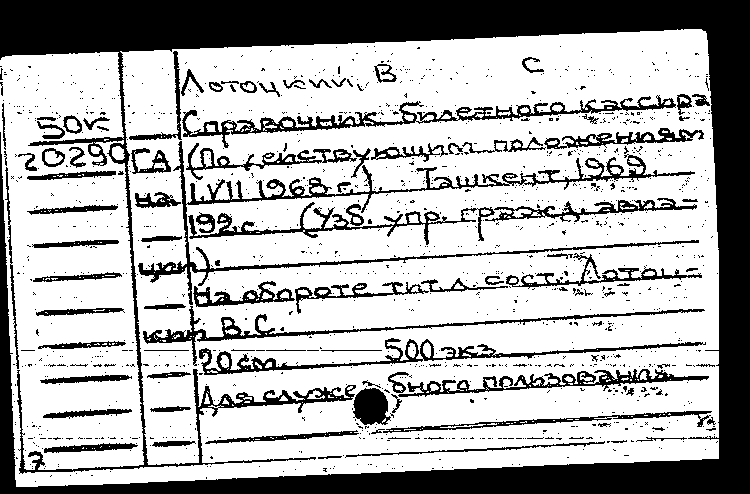 Лотоцкий, В С
50к Справочник билетного кассира
20290 ГА (По действующим положениям
на 1.VII 1968 г.). Ташкент, 1969.
192 с. (Узб. упр. гражд. авиа-
ции).
На обороте тит. л. сост.: Лотоц-
кий В.С.
20 см. 500 экз.
Для служебного пользования.
7